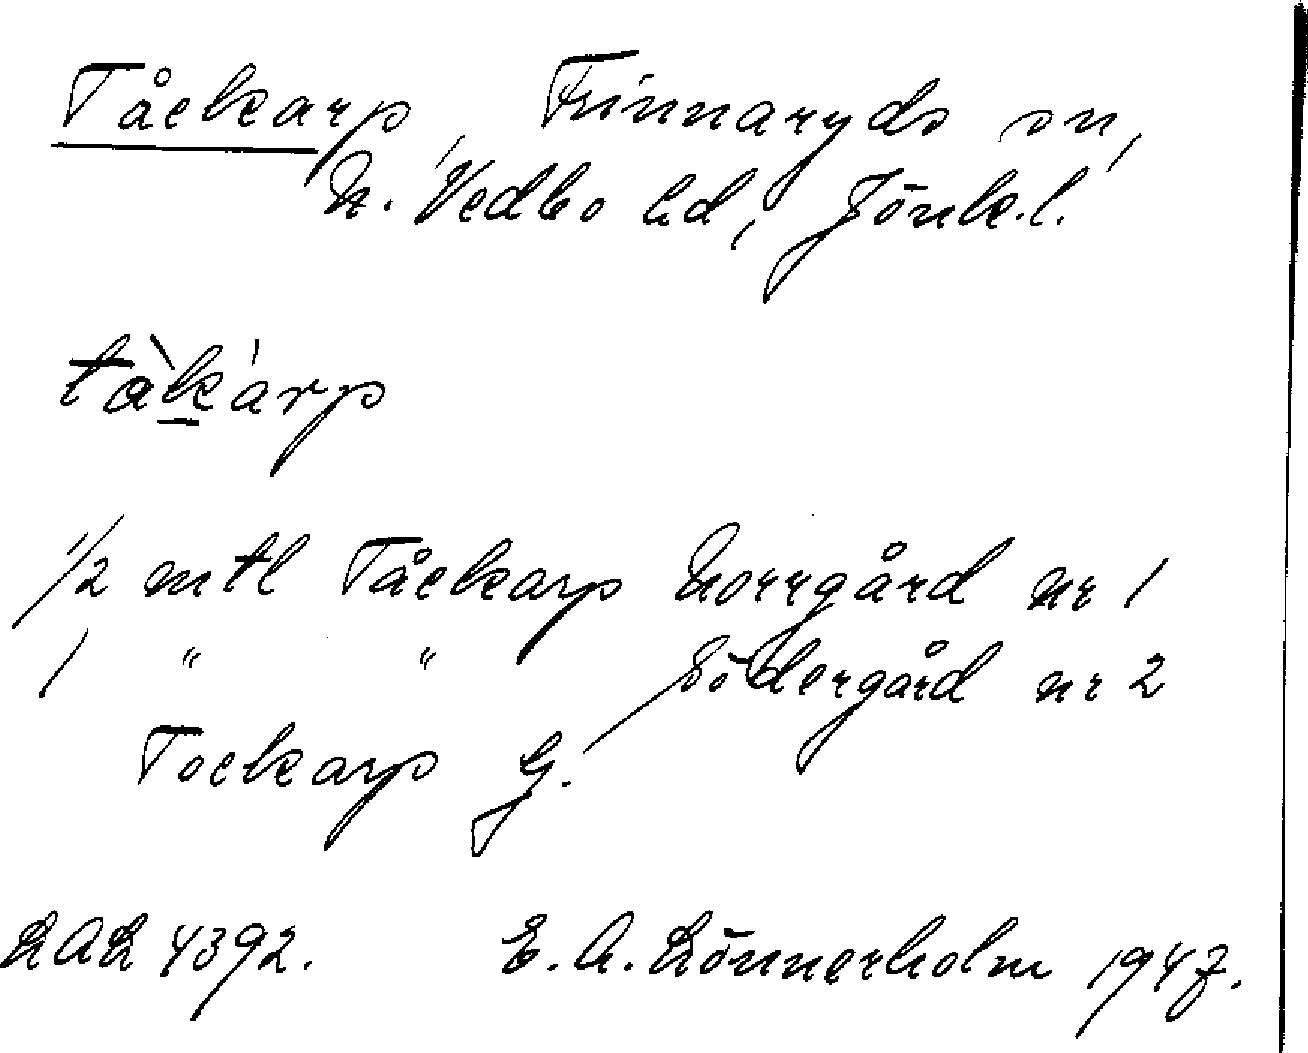 Tåckarp, Frinnaryds sn,
N. Vedbo hd, Jönk.l.
tàkárp
1/2 mtl Tåckarp Norrgård nr 1
1 " " Södergård nr 2
Tockarp G.
LAL 4392. E. A. Lönnerholm 1947.